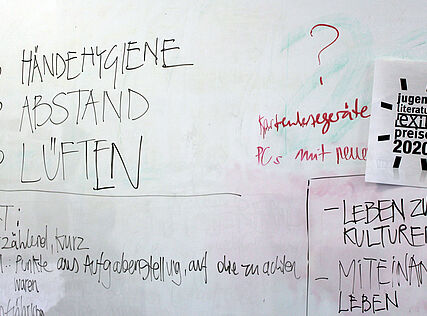 HÄNDEHYGIENE
ABSTAND
LÜFTEN
?
Kartenlesegeräte
PCs mit neue
jugen
literatur
exil
preise
2020
FT:
zählend, kurz
Punkte aus Aufgabenstellung, auf die zu achten
waren
- LEBEN ZW
KULTURE
- MITEINAN
LEBEN